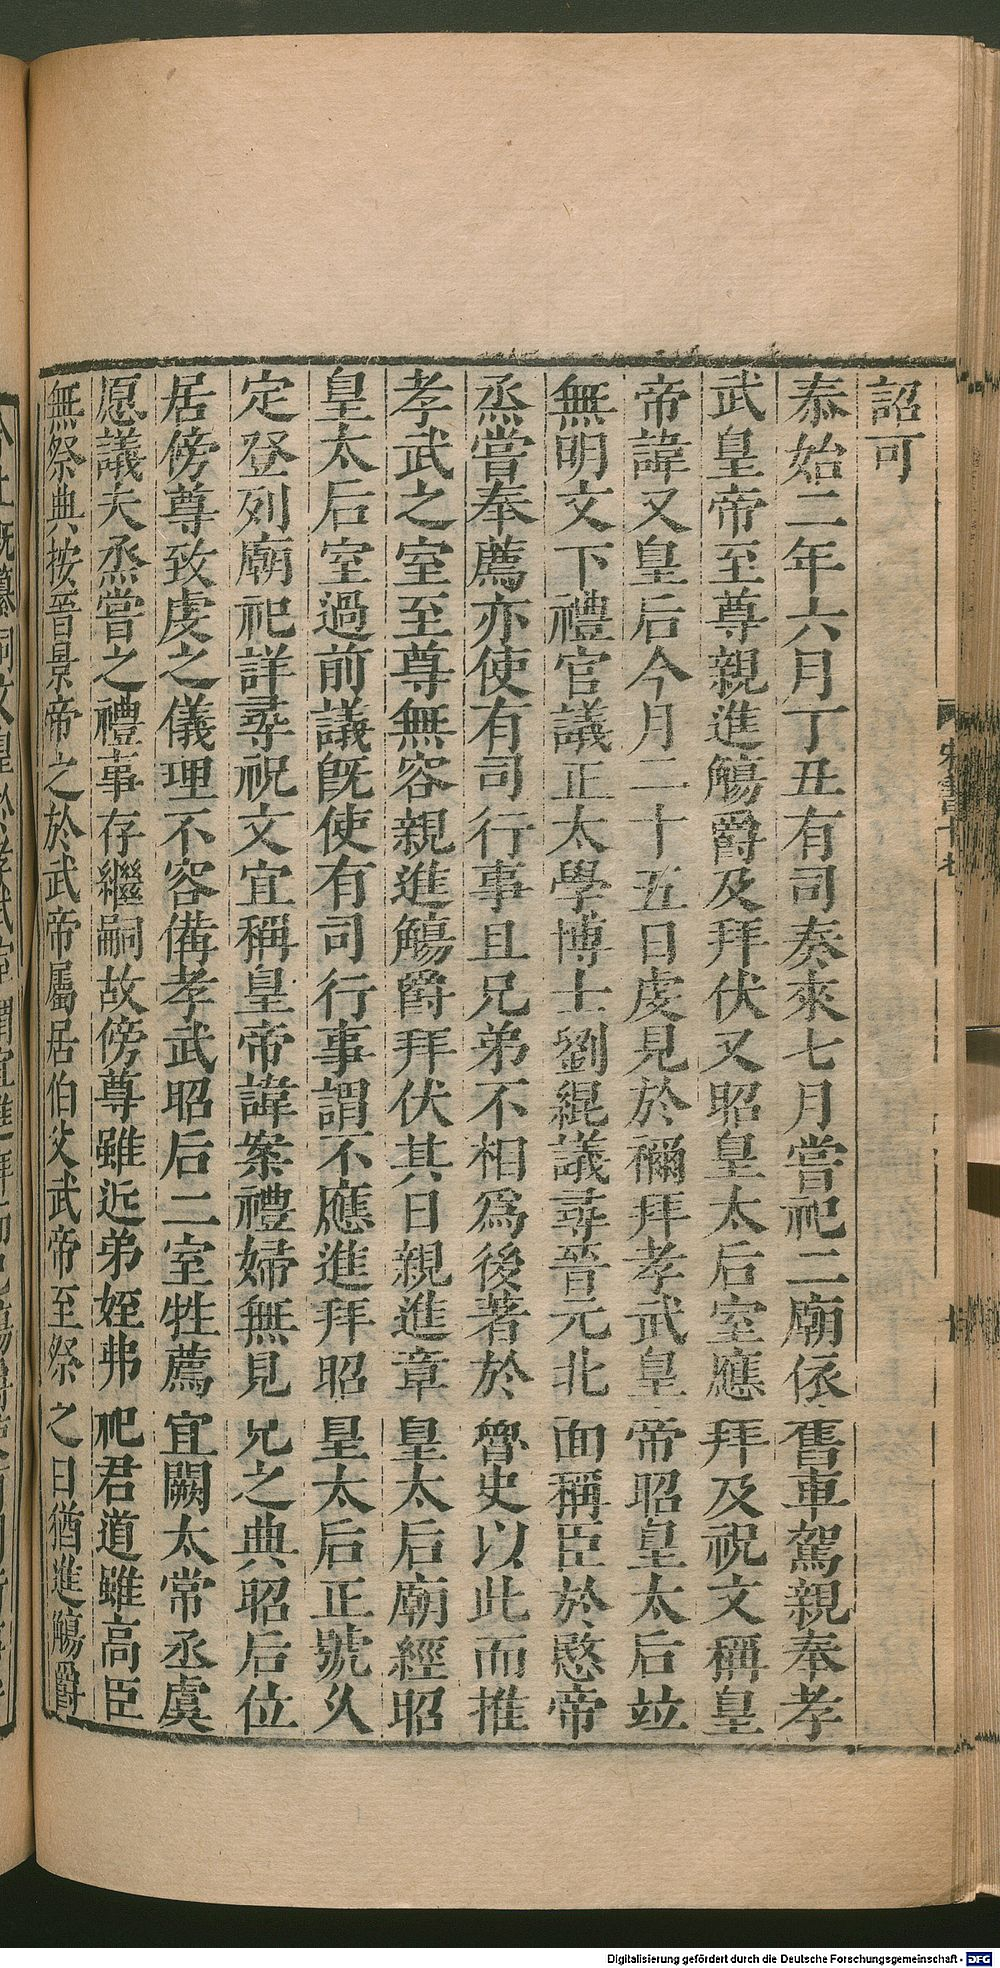 詔可
泰始二年六月丁丑有司奏來七月嘗祀二廟依舊車駕親奉孝
武皇帝至尊親進觴爵及拜伏又昭皇太后室應拜及祝文稱皇
帝諱又皇后今月二十五日虔見於禰拜孝武皇帝昭皇太后竝
無明文下禮官議正太學博士劉緄議尋晉元北面稱臣於愍帝
烝嘗奉薦亦使有司行事且兄弟不相爲後著於魯史以此而推
孝武之室至尊無容親進觴爵拜伏其日親進章皇太后廟經昭
皇太后室過前議旣使有司行事謂不應進拜昭皇太后正號久
定登列廟祀詳尋祝文宜稱皇帝諱案禮婦無見兄之典昭后位
居傍尊致虔之儀理不容備孝武昭后二室牲薦宜闕太常丞虞
愿議夫烝嘗之禮事存繼嗣故傍尊雖近弟姪弗祀君道雖高臣
無祭典按晉景帝之於武帝屬居伯父武帝至祭之日猶進觴爵
宋書十七
十
Digitalisierung gefördert durch die Deutsche Forschungsgemeinschaft - DFG